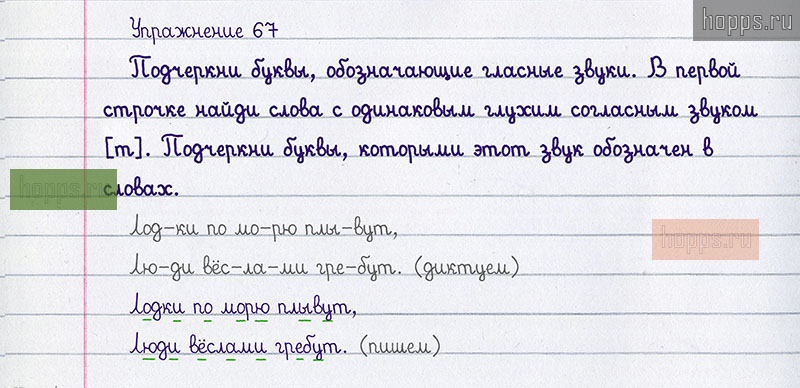 hopps.ru
Упражнение 67
Подчеркни буквы, обозначающие гласные звуки. В первой
строчке найди слова с одинаковым глухим согласным звуком
[т]. Подчеркни буквы, которыми этот звук обозначен в
hopps.ru словах.
Лод-ки по мо-рю плы-вут,
hopps.ru
Лю-ди вёс-ла-ми гре-бут. (диктуем)
Лодки по морю плывут,
Люди вёслами гребут. (пишем)